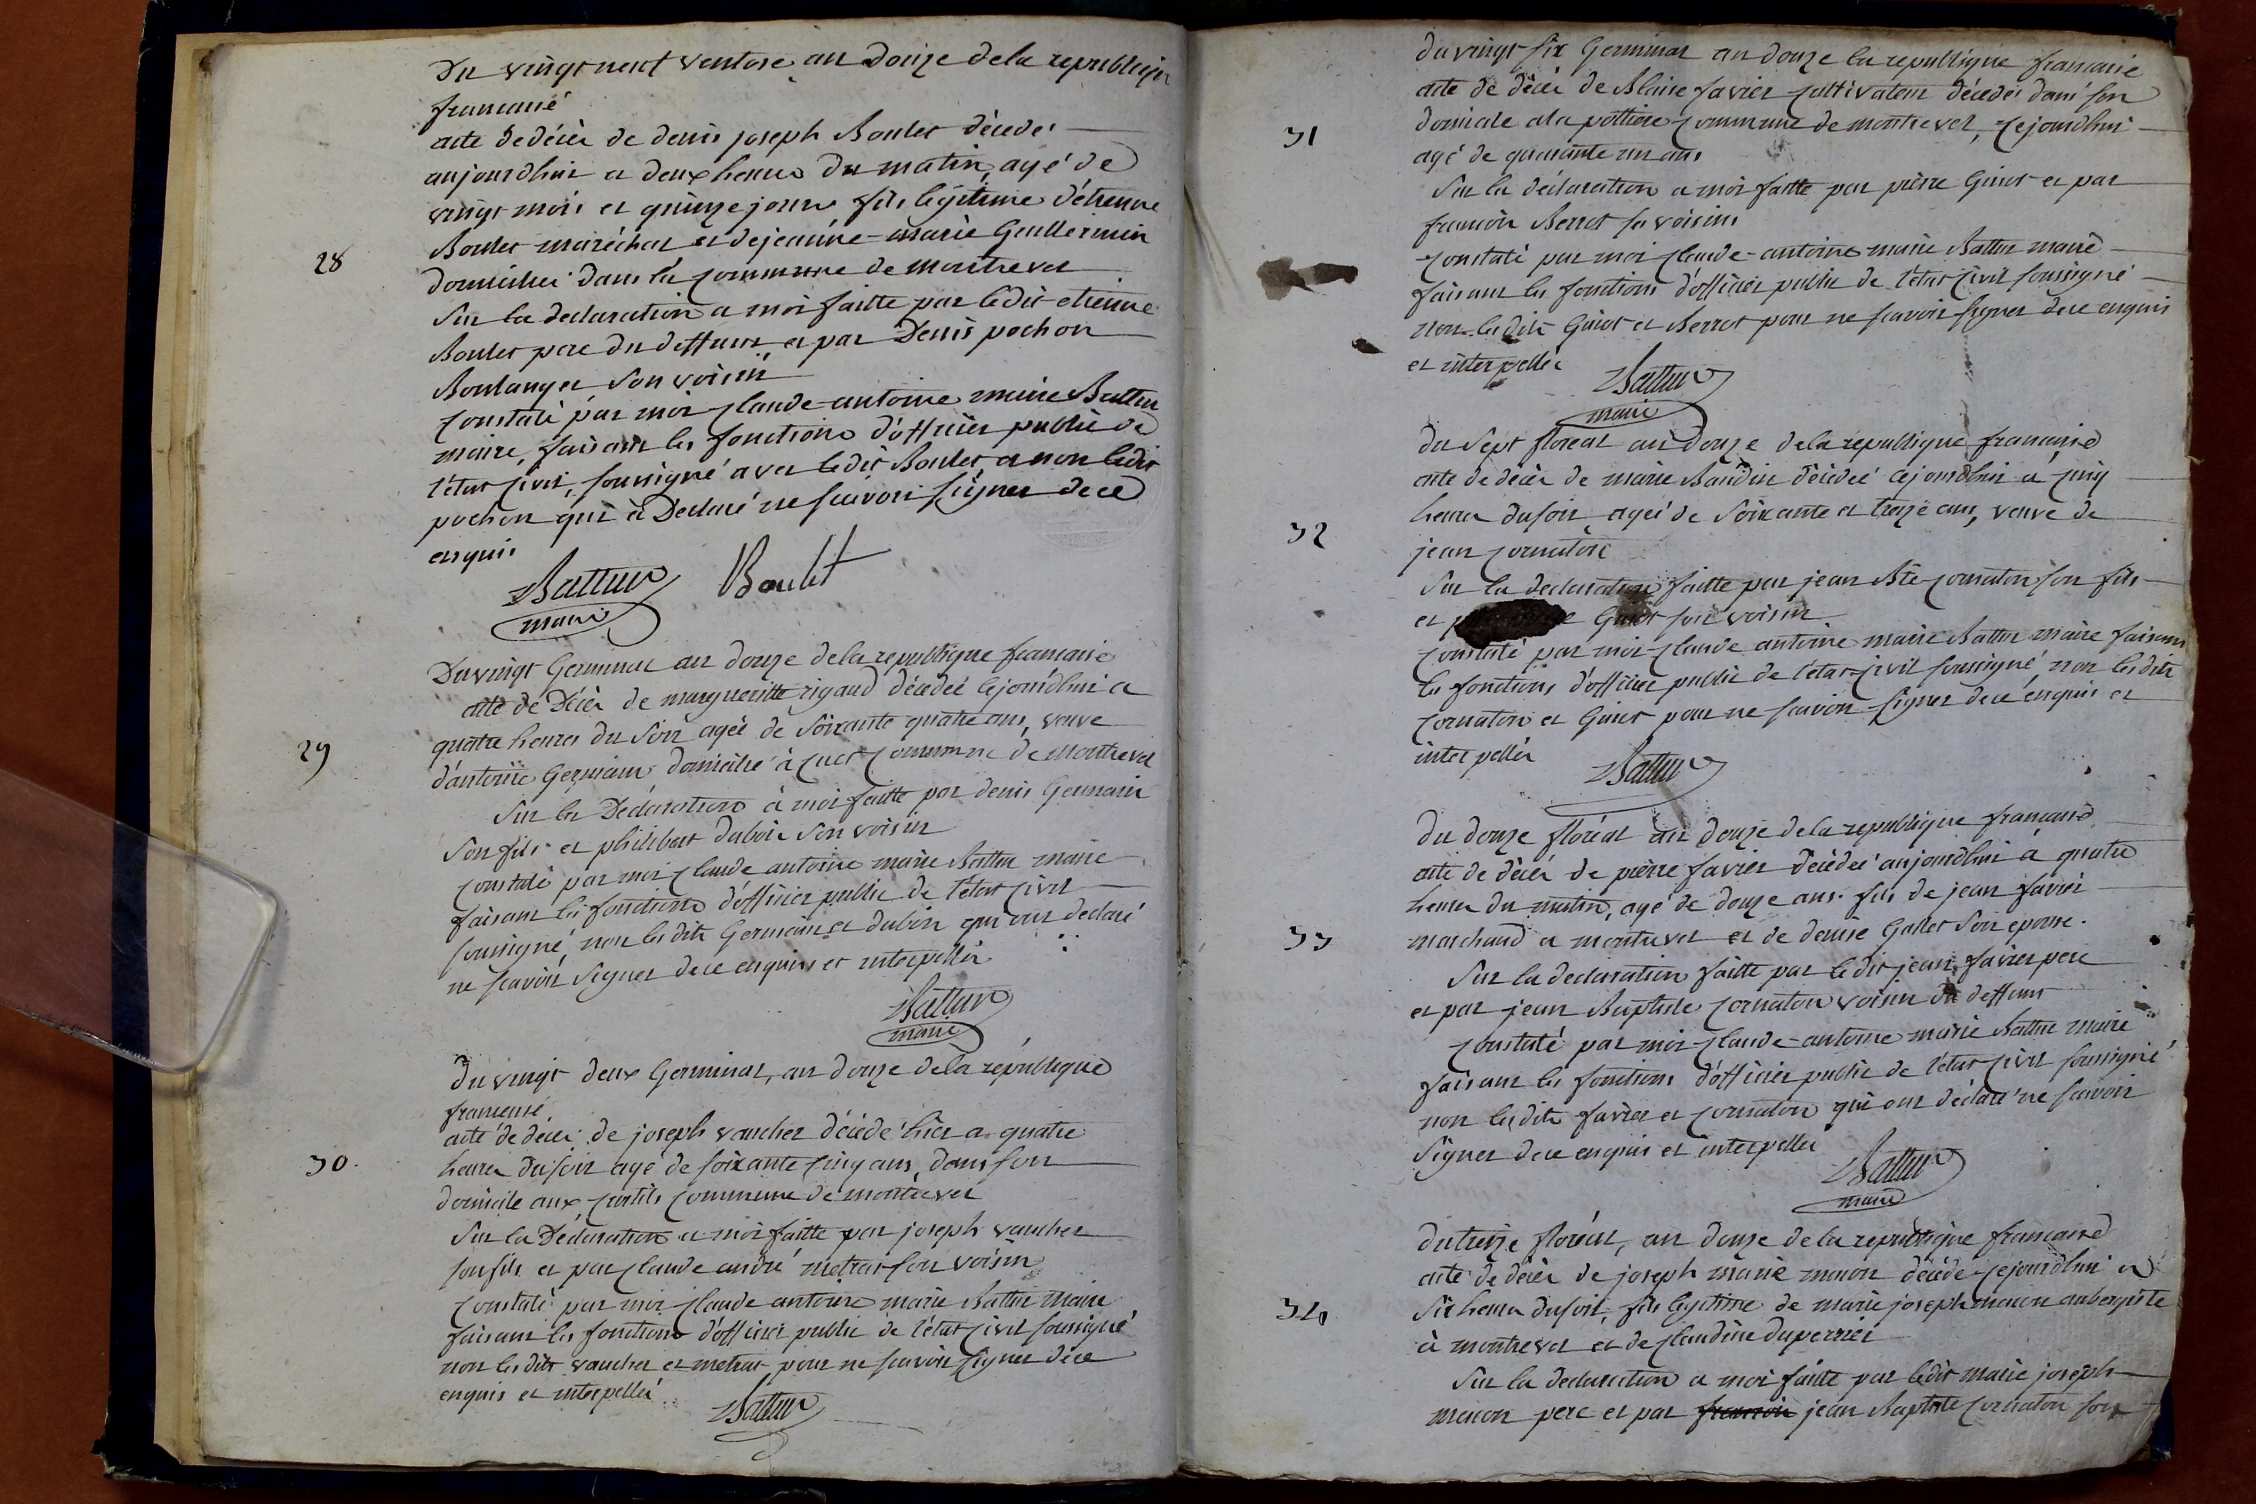 Du vingt neuf ventose an Douze dela republique
francaise
acte de décès de denis joseph Boulet décedé
aujourdhui a deux heures du matin, agé de
vingt mois et quinze jours fils légitime d'étienne
Boulet maréchal et de jeanne-marie Guillermin
28
domiciliés dans la commune de montrevel
Sur la declaration a moi faitte par ledit etienne
Boulet pere du deffunt, et par Denis pochon
Boulanger son voisin
Constaté par moi Claude-antoine marie Battur
maire, faisant les fonctions d'officier public de
l'état Civil, soussigné avec ledit Boulet, et non ledit
pochon qui a Déclaré ne scavoir signer de ce
enquis
Battur Boulet
maire
Du vingt Germinal an douze dela republique francaise
acte de Décès de margueritte rigaud décedée cejourdhui a
quatre heures du soir agée de soixante quatre ans, veuve
29
d'antoine Germain domicilié à Cuet Commune de montrevel
Sur la Déclaration à moi faitte par denis Germain
son fils et philibert dubois son voisin
Constaté par moi Claude antoine marie Battur maire
faisant les fonctions d'officier public de l'état Civil
soussigné, non lesdits Germain et dubois qui ont declaré
ne scavoir signer de ce enquis et interpellés
Battur
maire
Du vingt deux Germinal, an douze dela république
francaise.
acte de décès de joseph vaucher décédé hier a quatre
30.
heures du soir agé de soixante cinq ans, dans son
domicile aux Curtils Commune de montrevel
Sur la Déclaration a moi faitte par joseph vaucher
son fils et par Claude andré metras son voisin
Constaté par moi Claude antoine marie Battur maire
faisant les fonctions d'officier public de l'état Civil soussigné
non lesdits vaucher et metras pour ne scavoir signer de ce
enquis et interpellés
Battur
du vingt six Germinal an douze la republique francaise
acte de décès de Blaise favier Cultivateur décédé dans son
31
domicile a la pottiere Commune de montrevel, Cejourdhui
agé de quarante un ans
Sur la déclaration a moi faitte par pierre Guiot et par
francois Berret ses voisins
Constaté par moi Claude-antoine marie Battur maire
faisant les fonctions d'officier public de l'état Civil soussigné
non lesdits Guiot et Berret pour ne scavoir signer de ce enquis
et interpellés
Battur
maire
du sept floréal an douze dela republique francaise
acte de décès de marie Baudin décédée cejourdhui a cinq
32
heures du soir, agée de soixante et treize ans, veuve de
jean Cornaton
Sur la declaration faitte par jean Bte Cornaton son fils
et Guiot son voisin
Constaté par moi Claude antoine marie Battur maire faisant
les fonctions d'officier public de l'état-Civil soussigné non lesdits
Cornaton et Guiot pour ne scavoir signer de ce enquis et
interpellés
Battur
du douze floréal an douze dela republique francaise
acte de décès de pierre favier décédé aujourdhui a quatre
heures du matin, agé de douze ans. fils de jean favier
33
marchand a montrevel et de denise Gallet son epouse.
Sur la declaration faitte par ledit jean favier pere
et par jean Baptiste Cornaton voisin du deffunt
Constaté par moi Claude-antoine marie Battur maire
faisant les fonctions d'officier public de l'état Civil soussigné
non lesdits favier et Cornaton qui ont déclaré ne scavoir
signer de ce enquis et interpellés
Battur
maire
du treize floréal, an douze de la republique francaise
acte de décès de joseph marie macon décédé Cejourdhui a
34
six heures du soir, fils légitime de marie joseph macon aubergiste
à montrevel et de Claudine duperrier
Sur la declaration a moi faitte par ledit marie joseph
macon pere et par francois jean Baptiste Cornaton son